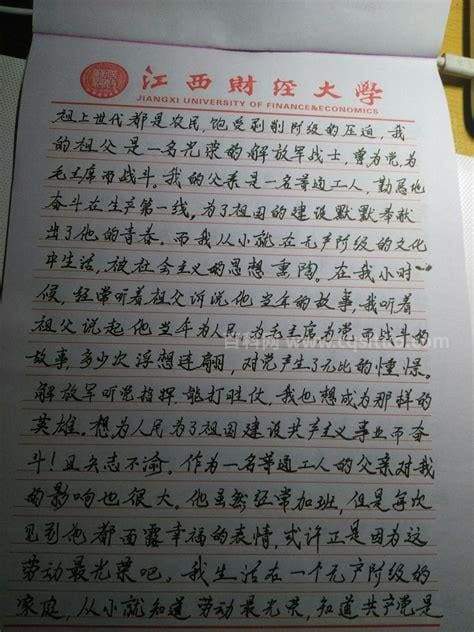 江西财经大学
JIANGXI UNIVERSITY OF FINANCE&ECONOMICS
祖上世代都是农民,饱受剥削阶级的压迫,我
的祖父是一名光荣的解放军战士,曾为党为
毛主席而战斗。我的父亲是一名普通工人,勤恳地
奋斗在生产第一线,为了祖国的建设默默奉献
出了他的青春。而我从小就在无产阶级的文化
中生活,被社会主义的思想熏陶。在我小时
候,经常听着祖父诉说他当年的故事,我听着
祖父说起他当年为人民、为毛主席为党而战斗的
故事,多少次浮想连翩,对党产生了无比的憧憬。
解放军听党指挥,能打胜仗,我也想成为那样的
英雄。想为人民为了祖国建设共产主义事业而奋
斗!且矢志不渝。作为一名普通工人的父亲对我
的影响也很大。他虽然经常加班,但是每次
见到他都面露幸福的表情,或许正是因为这
劳动最光荣吧。我生活在一个无产阶级的
家庭,从小就知道劳动最光荣,知道共产党是
百科网 www.cq